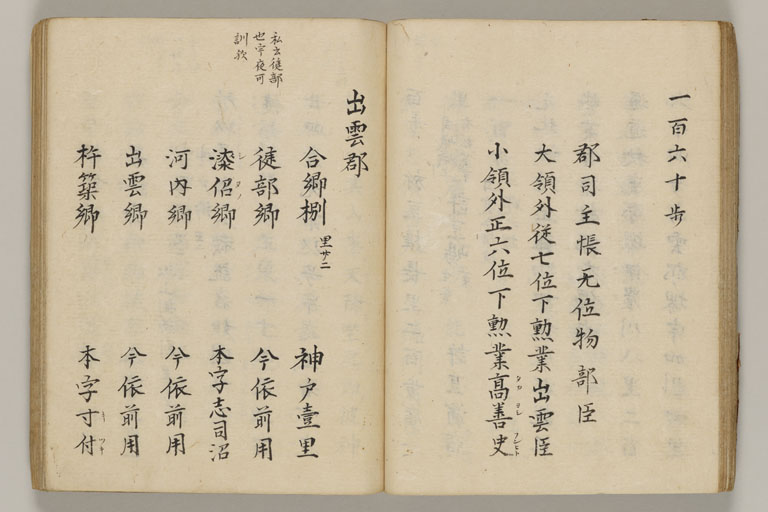 一百六十歩
郡司主帳无位物部臣
大領外従七位下勲業出雲臣
小領外正六位下勲業髙善史
出雲郡
合郷捌 里廿二 神戸壹里
徒部郷 今依前用
漆侶郷 本字志司沼
河内郷 今依前用
出雲郷 今依前用
杵築郷 本字寸付
私云徒部
也
可
訓欤